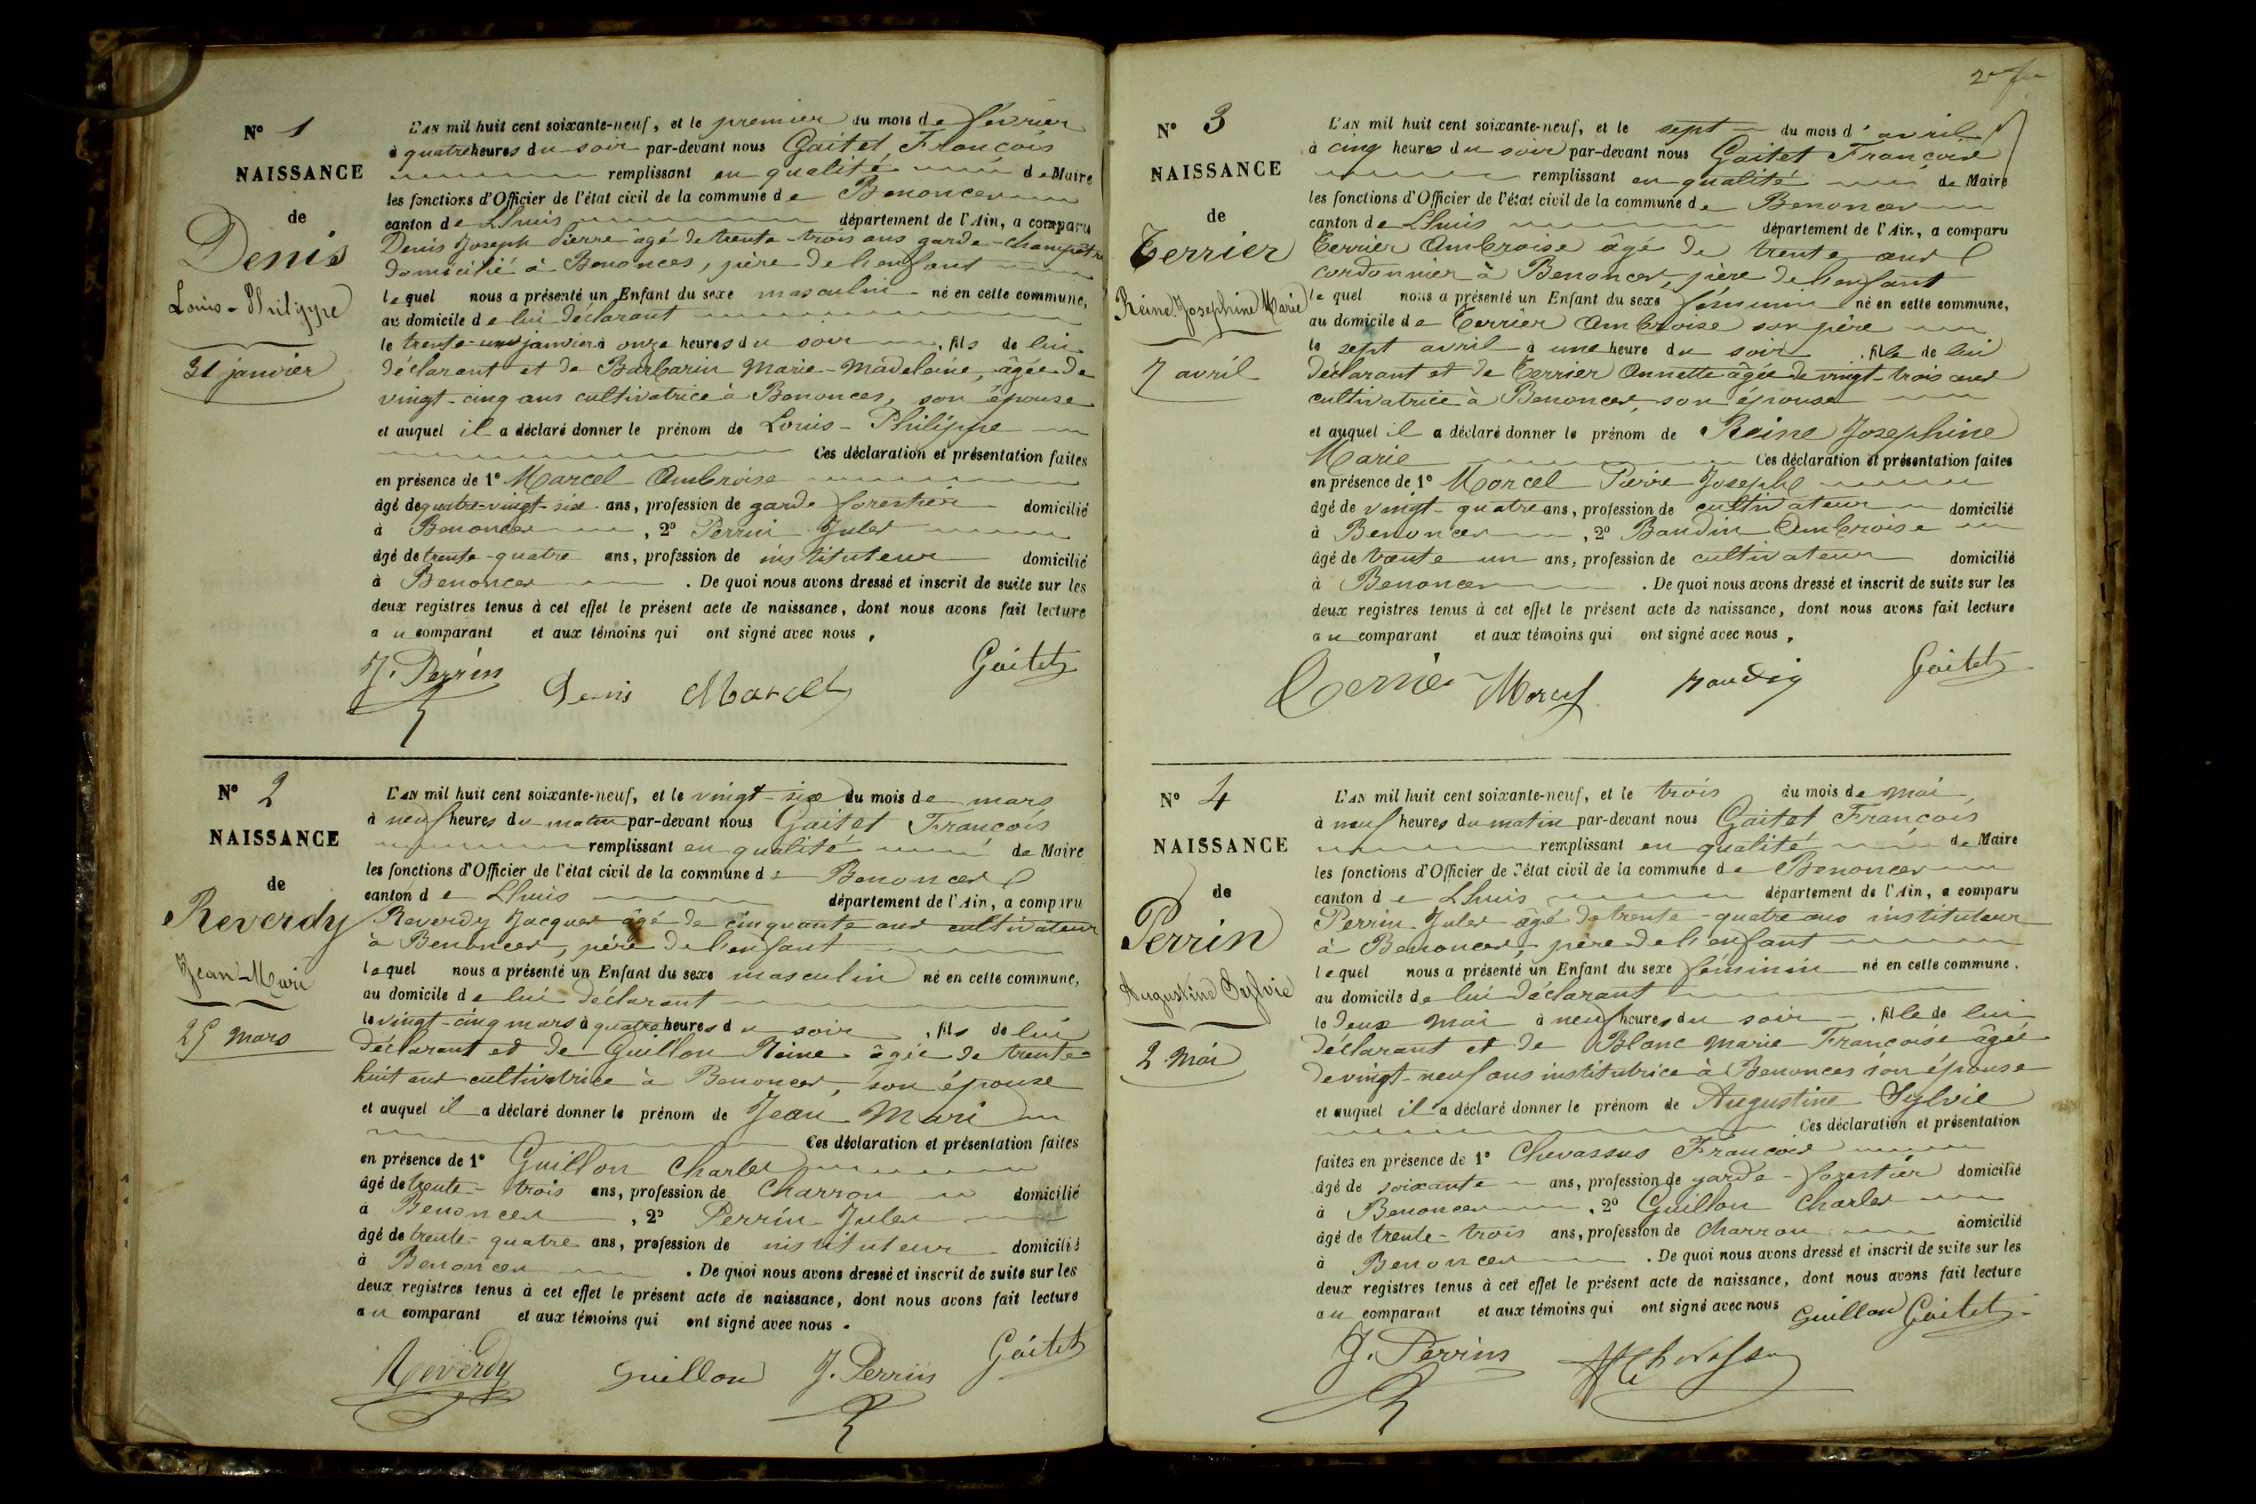 Nº 1
NAISSANCE
de
Denis
Louis-Philippe
31 janvier
L'AN mil huit cent soixante-neuf, et le premier du mois de février
à quatre heures du soir par-devant nous Gaitet François
remplissant en qualité de Maire
les fonctions d'Officier de l'état civil de la commune de Benonces
canton de Lhuis département de l'Ain, a comparu
Denis Joseph Pierre âgé de trente-trois ans garde-champêtre
domicilié à Benonces, père de l'enfant
lequel nous a présenté un Enfant du sexe masculin né en cette commune,
au domicile de lui déclarant
le trente-un janvier à onze heures du soir, fils de lui
déclarant et de Barbarin Marie-Madeleine, âgée de
vingt-cinq ans cultivatrice à Benonces, son épouse
et auquel il a déclaré donner le prénom de Louis-Philippe
Ces déclaration et présentation faites
en présence de 1º Marcel Ambroise
âgé de quatre-vingt-six ans, profession de garde forestier domicilié
à Benonces, 2º Perrin Jules
âgé de trente-quatre ans, profession de instituteur domicilié
à Benonces. De quoi nous avons dressé et inscrit de suite sur les
deux registres tenus à cet effet le présent acte de naissance, dont nous avons fait lecture
au comparant et aux témoins qui ont signé avec nous,
J. Perrin Denis Marcel Gaitet
Nº 2
NAISSANCE
de
Reverdy
Jean-Mari
25 mars
L'AN mil huit cent soixante-neuf, et le vingt-six du mois de mars
à neuf heures du matin par-devant nous Gaitet François
remplissant en qualité de Maire
les fonctions d'Officier de l'état civil de la commune de Benonces
canton de Lhuis département de l'Ain, a comparu
Reverdy Jacques âgé de cinquante ans cultivateur
à Benonces, père de l'enfant
lequel nous a présenté un Enfant du sexe masculin né en cette commune,
au domicile de lui déclarant
le vingt-cinq mars à quatre heures du soir, fils de lui
déclarant et de Guillon Reine âgée de trente-
huit ans cultivatrice à Benonces, son épouse
et auquel il a déclaré donner le prénom de Jean Mari
Ces déclaration et présentation faites
en présence de 1º Guillon Charles
âgé de trente-trois ans, profession de charron domicilié
à Benonces, 2º Perrin Jules
âgé de trente-quatre ans, profession de instituteur domicilié
à Benonces. De quoi nous avons dressé et inscrit de suite sur les
deux registres tenus à cet effet le présent acte de naissance, dont nous avons fait lecture
au comparant et aux témoins qui ont signé avec nous.
Reverdy Guillon J. Perrin Gaitet
Nº 3
NAISSANCE
de
Terrier
Reine Josephine Marie
7 avril
L'AN mil huit cent soixante-neuf, et le sept du mois d'avril
à cinq heures du soir par-devant nous Gaitet François
remplissant en qualité de Maire
les fonctions d'Officier de l'état civil de la commune de Benonces
canton de Lhuis département de l'Ain, a comparu
Terrier Ambroise âgé de trente ans
cordonnier à Benonces, père de l'enfant
lequel nous a présenté un Enfant du sexe féminin né en cette commune,
au domicile de Terrier Ambroise son père
le sept avril à une heure du soir, fille de lui
déclarant et de Terrier Annette âgée de vingt-trois ans
cultivatrice à Benonces, son épouse
et auquel il a déclaré donner le prénom de Reine Josephine
Marie Ces déclaration et présentation faites
en présence de 1º Marcel Pierre Joseph
âgé de vingt-quatre ans, profession de cultivateur domicilié
à Benonces, 2º Baudin Ambroise
âgé de trente un ans, profession de cultivateur domicilié
à Benonces. De quoi nous avons dressé et inscrit de suite sur les
deux registres tenus à cet effet le présent acte de naissance, dont nous avons fait lecture
au comparant et aux témoins qui ont signé avec nous,
Terrier Marcel Baudin Gaitet
Nº 4
NAISSANCE
de
Perrin
Augustine Sylvie
2 mai
L'AN mil huit cent soixante-neuf, et le trois du mois de mai,
à neuf heures du matin par-devant nous Gaitet François
remplissant en qualité de Maire
les fonctions d'Officier de l'état civil de la commune de Benonces
canton de Lhuis département de l'Ain, a comparu
Perrin Jules âgé de trente-quatre ans instituteur
à Benonces, père de l'enfant
lequel nous a présenté un Enfant du sexe féminin né en cette commune.
au domicile de lui déclarant
le deux mai à neuf heures du soir, fille de lui
déclarant et de Blanc Marie Françoise âgée
de vingt-neuf ans institutrice à Benonces son épouse
et auquel il a déclaré donner le prénom de Augustine Sylvie
Ces déclaration et présentation
faites en présence de 1º Chevassus François
âgé de soixante ans, profession de garde-forestier domicilié
à Benonces, 2º Guillon Charles
âgé de trente-trois ans, profession de charron domicilié
à Benonces. De quoi nous avons dressé et inscrit de suite sur les
deux registres tenus à cet effet le présent acte de naissance, dont nous avons fait lecture
au comparant et aux témoins qui ont signé avec nous Guillon Gaitet
J. Perrin